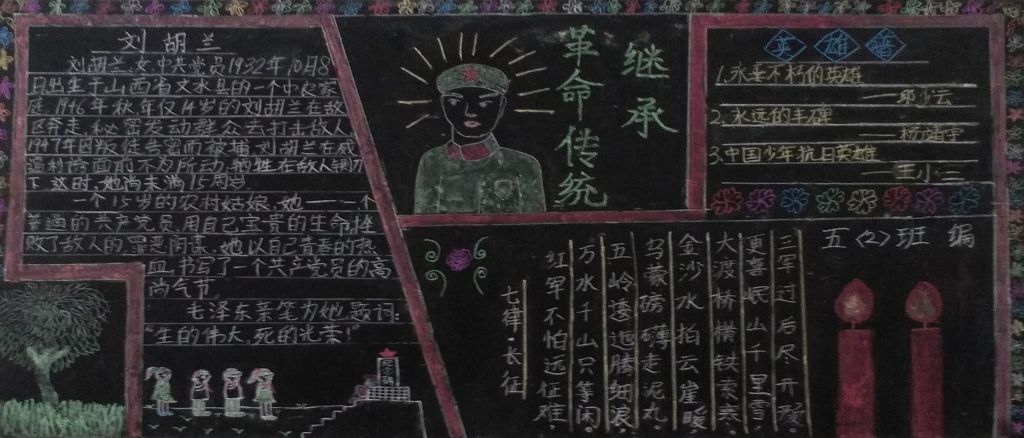 刘胡兰
刘胡兰,女,中共党员,1932年10月8
日出生于山西省文水县的一个中农家
庭.1946年秋年仅14岁的刘胡兰在敌
区奔走,秘密发动群众去打击敌人.
1947年因叛徒告密而被捕.刘胡兰在威
逼利诱面前不为所动,牺牲在敌人铡刀
下.这时,她尚未满15周岁
一个15岁的农村姑娘,她——一个
普通的共产党员,用自己宝贵的生命挫
败了敌人的
她以自己青春的热
血,书写了一个共产党员的高
尚气节.
毛泽东亲笔为她题词:
“生的伟大,死的光荣!”
继承
革命传统
英雄谱
1.永垂不朽的英雄
——邱少云
2.永远的丰碑
——杨靖宇
3.中国少年抗日英雄
——王小二
五〈2〉班 编
七律·长征
红军不怕远征难.
万水千山只等闲.
五岭逶迤腾细浪.
乌蒙磅礴走泥丸.
金沙水拍云崖暖.
大渡桥横铁索寒.
更喜岷山千里雪.
三军过后尽开颜.